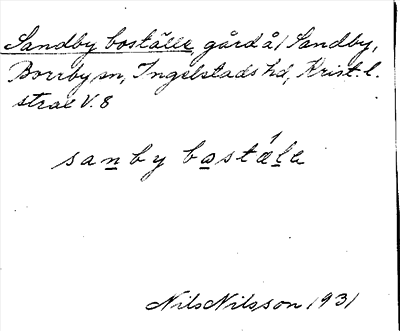 Sandby boställe, gård å 1 Sandby,
Borrby sn, Ingelstads hd, Krist. l.
V. 8
sanby bostäle
Nils Nilsson 1931